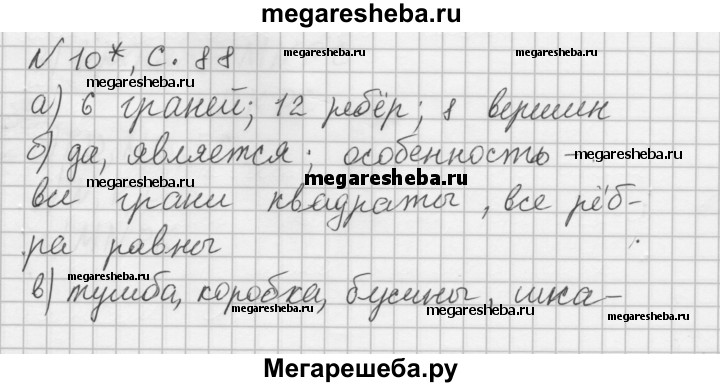 megaresheba.ru
N 10*, с. 88
megaresheba.ru
megaresheba.ru
megaresheba.ru
а) 6 граней; 12 рёбер; 8 вершин
б) да, является; особенность –
megaresheba.ru
megaresheba.ru
megaresheba.ru
все грани квадраты, все рёб-
ра равны
megaresheba.ru
megaresheba.ru
в) тумба, коробка, бусины, шка-
megaresheba.ru
megaresheba.ru
Мегарешеба.ру